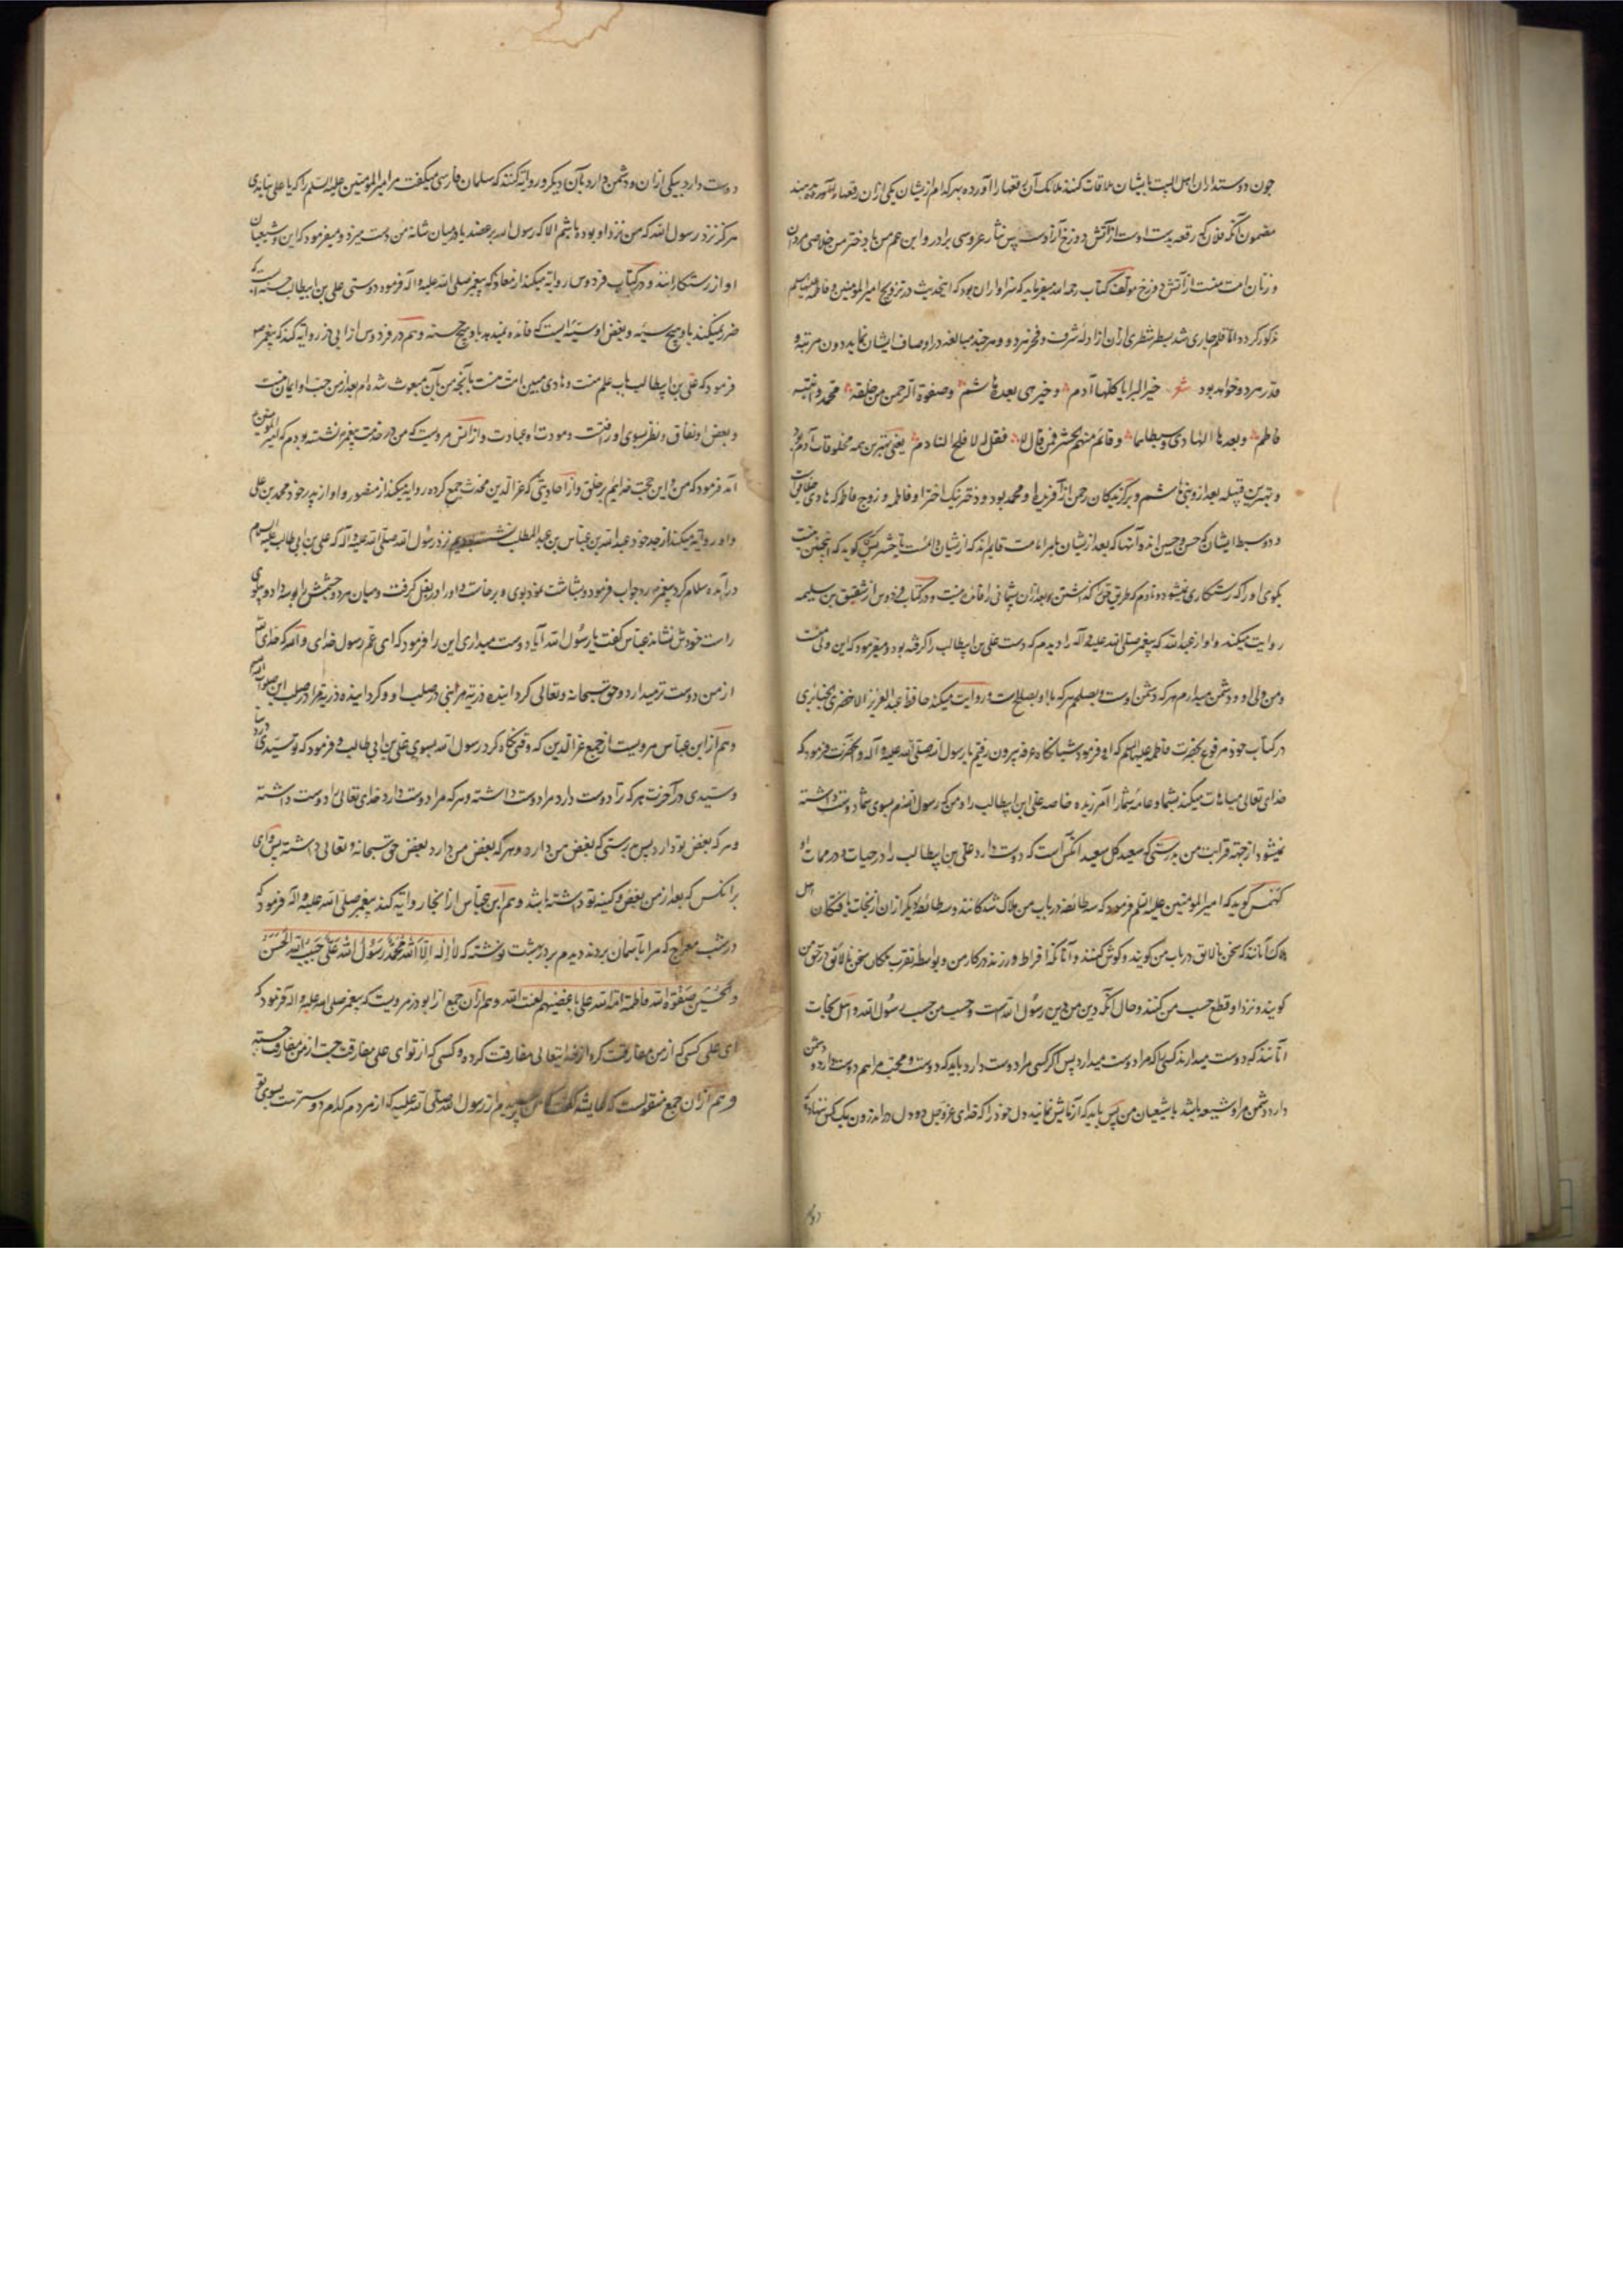 چون دوستداران اهل البیت با یشان ملاقات کنند ملائک آن رقعها را آورده بهر کدام ازیشان یکی از آن رقعها
مضمون آنکه فلان که رقعه بدست اوست از آتش دوزخ آزادست پس نثار عروسی برادر و ابن عم من با دختر من خلاصی مردان
و زنان امت منست از آتش دوزخ مولف کتاب رحمه الله میفرماید که سزاواران بود که این حدیث در تزویج امیرالمومنین و فاطمه علیهما السلم
مذکور کردد اما قلم جاری شد بسطر شطری از آن از ادله شرف و فخر هر دو و هر چند مبالغه در اوصاف ایشان نماید دون مرتبه و
قدر هر دو خواهد بود شعر خیر البرایا کلها آدم و خیر حی بعده هاشم و صفوة الرحمن من خلقه محمد و ابنته
فاطم و بعدها الهادی و سبطاهما و قائم منهم یحشر فمن قال لا فقل له لا افلح النادم یعنی بهترین همه مخلوقات آدم بود
و بهترین قبیله بعد ازو بنی هاشم و برگزیدگان رحمن از آفریدها و محمد بود و دختر نیک اختر او فاطمه و زوج فاطمه که هادی خلایق است
و دو سبط ایشان که حسن و حسین اند و آنها که بعد ازیشان بامر امامت قایم اند که ازیشان دانست تا حشر پس هر که گوید که اینچنین نیست
بگوی او را که رستکاری نمیشود و نادم که طریق حق گذاشتن و بعد از آن پشیمانی را فائده نیست و در کتاب فردوس از شقیق بن سلیمه
روایت میکند و او از عبد الله که پیغمبر صلی الله علیه و آله را دیدم که دست علی بن ابیطالب را گرفته بود و میفرمود که این ولی منست
و من ولی او و دشمن میدارم هر که دشمن اوست و بصلحم هر که با او بصلح است و روایت میکند حافظ عبد العزیز الاخضر جنابذی
در کتاب خود مرفوع بحضرت فاطمه علیها السلم که او فرمود شبانگاه عرفه بیرون رفتیم با رسول الله صلی الله علیه و آله و آنحضرت فرمود که
خدای تعالی مباهات میکند بشما و عامه شما را آمرزیده خاصه علی ابن ابیطالب را و من که رسول اللهم بسوی شما دوست داشته
نمیشود از جهت قرابت من بدرستی که سعید کل سعید آنکس است که دوست دارد علی بن ابیطالب را در حیات او در ممات او
کهمس گوید که امیر المومنین علیه السلم فرمود که سه طائفه در باب من هلاک شدکانند و سه طائفه دیگر از آن از نجات یافتگان اهل
هلاک آنانند که سخن نالایق در باب من گویند و گوش کنند و آنانکه افراط ورزند در کار من و بواسطه تقرب بملکان سخن نالایق در حق من
گویند و نزد او قطع حسب من کنند و حال آنکه دین من دین رسول الله است و حسب من حسب رسول الله و اهل نجات
آنانند که دوست میدارند کسی را که مرا دوست میدارد پس اگر کسی مرا دوست دارد باید که دوست و محب مرا هم دوست دارد و دشمن
دارد دشمن مرا و شیعه باشد با شیعیان من پس باید که آزمایش نمایند دل خود را که خدای عز و جل دو دل در اندرون یک کس ننهاده که
دوست دارد بیکی از آن و دشمن دارد بآن دیگر و روایة کنند که سلمان فارسی میگفت مر امیر المومنین علیه السلم را که یا علی نیامدی
هرگز نزد رسول الله که من نزد او بوده باشم الا که رسول الله بر عضد یا در میان شانه من دست میزد و میفرمود که این و شیعیان
او از رستکارانند و در کتاب فردوس روایة میکند از معاذ که پیغمبر صلی الله علیه و آله فرمود دوستی علی بن ابیطالب حسنه است که
ضرر نمیکند با و هیچ سیئه و بغض او سیئه ایست که فائده نمیدهد با و هیچ حسنه و هم در فردوس از ابی ذر روایة کند که پیغمبر ص
فرمود که علی بن ابیطالب باب علم منست و هادی مبین امت منست بآنچه من بآن مبعوث شده ام بعد از من حب او ایمان منست
و بغض او نفاق و نظر بسوی او رافت و مودت او عبادت و از انس مرویست که من در خدمت پیغمبر نشسته بودم که امیر المومنین
آمد فرمود که من و این حجت خدائیم بر خلق و از احادیثی که عز الدین محدث جمع کرده روایة میکند از منصور و او از پدر خود محمد بن علی
و او روایة میکند از جد خود عبد الله بن عباس بن عبد المطلب نزد رسول الله صلی الله علیه و آله که علی بن ابی طالب علیه السلم
درآمده سلام کرد پیغمبر رد جواب فرمود و بشاشت نمود بوی و برخاست و او را در بغل گرفت و میان هر دو چشمش را بوسه داد و پهلوی
راست خودش نشاند عباس گفت یا رسول الله آیا دوست میداری این را فرمود که ای عم رسول خدای والله که خدای
از من دوست تر میدارد و حق سبحانه و تعالی گردانیده ذریه هر نبی در صلب او و گردانیده ذریه مرا در صلب این
و هم از ابن عباس مرویست از جمع عز الدین که وقتی نگاه کرد رسول الله بسوی علی بن ابی طالب و فرمود که تو سیدی در دنیا
و سیدی در آخرت هر که ترا دوست دارد مرا دوست داشته و هر که مرا دوست دارد خدای تعالی را دوست داشته
و هر که بغض بتو دارد پس بدرستی که بغض من دارد و هر که بغض من دارد بغض حق سبحانه و تعالی داشته پس وای
بر آنکس که بعد از من بغض و کینه تو داشته باشد و هم ابن عباس از آنجا روایة کند پیغمبر صلی الله علیه و آله فرمود که
در شب معراج که مرا بآسمان بردند دیدم بر در بهشت نوشته که لا اله الا الله محمد رسول الله علی حبیب الله الحسن
و الحسین صفوة الله فاطمة امة الله علی باغضیهم لعنت الله و هم از آن جمع از ابو ذر مرویست که پیغمبر صلی الله علیه و اله فرمود که
ای علی کسی که از من مفارقت کرد از خدایتعالی مفارقت کرده و کسی که از تو ای علی مفارقت جست از من مفارقت جسته
و هم از آن جمع منقولست که عایشه گفت پرسیدم از رسول الله صلی الله علیه که از مردم کدام دوسترست بسوی تو